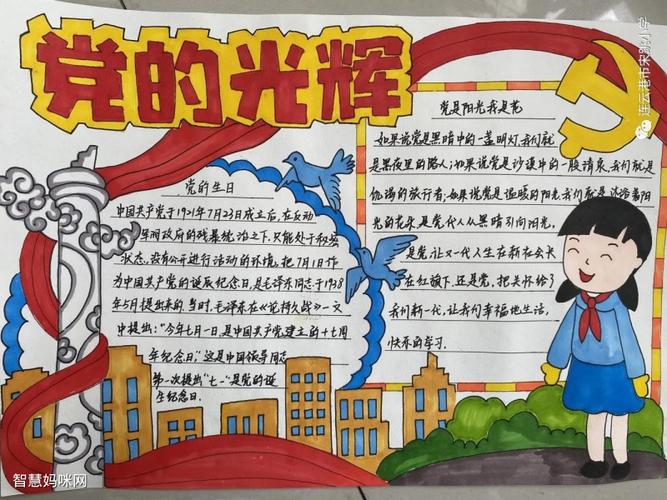 党的光辉
党的生日
中国共产党于1921年7月23日成立后,在反动
军阀政府的残暴统治之下,只能处于秘密
状态,没有公开进行活动的环境,把7月1日作
为中国共产党的诞辰纪念日,是毛泽东同志于1938
年5月提出来的,当时,毛泽东在《论持久战》一文
中提出:"今年七月一日,是中国共产党建立的十七周
年纪念日,"这是中国领导同志
第一次提出"七一"是党的诞
生纪念日.
党是阳光我是花
如果说党是黑暗中的一盏明灯,我们就
是黑夜里的路人;如果说党是沙漠中的一股清泉,我们就是
饥渴的旅行者;如果说党是温暖的阳光,我们就是沐浴着阳
光的花朵,是党代人从黑暗引向阳光,
是党,让一代人生在新在会长
在红旗下,还是党,把关怀给了
我们新一代,让我们幸福地生活,
快乐的学习.
连云港市宋跳小学
智慧妈咪网